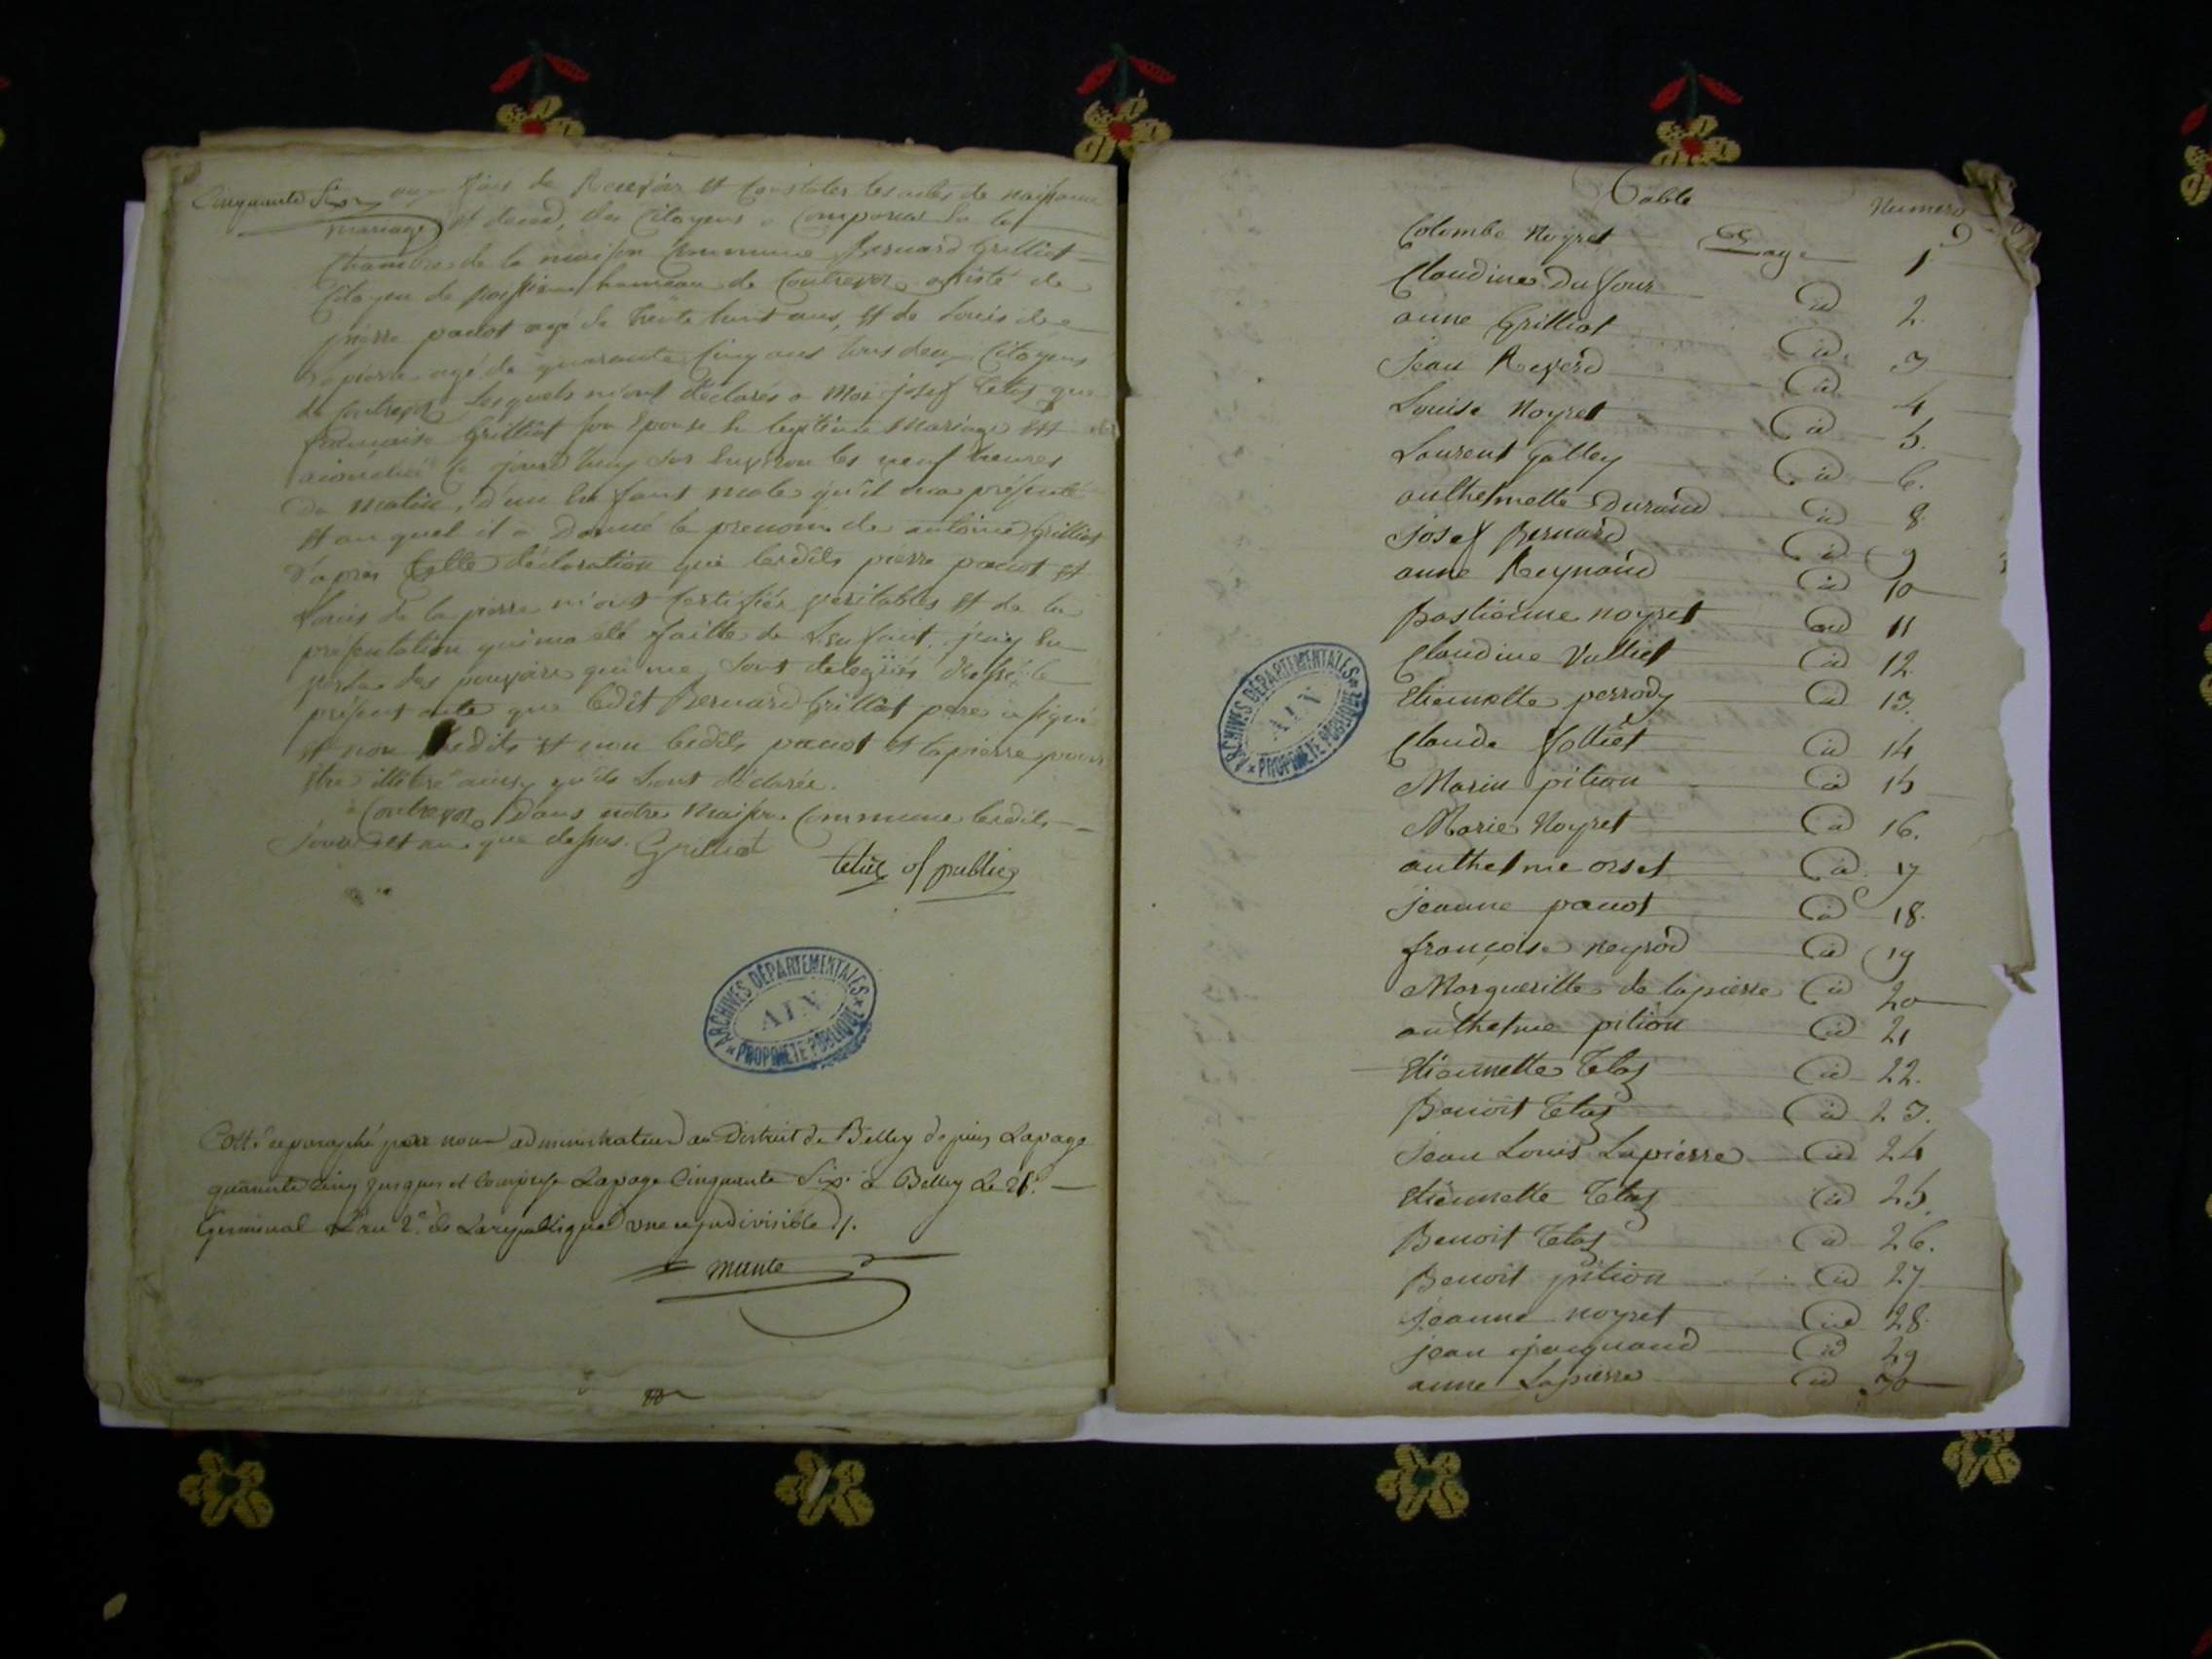 Cinquante Six
aux fins de Recevoir et Constater les actes de naissance
mariage et deced, des Citoyens a Comparus En la
Chambre de la maison Commune Bernard Grilliet
Citoyen de hameau de Contrevoz assisté de
pierre panot agé de trente huit ans, et de Louis de
lapierre agé de quarante Cinq ans tous deux Citoyens
de Contrevoz lesquels m'ont déclarés a Moi josef que
francaise Grilliet son Epouse En legitime Mariage est
acouchée le jourd'huy sur Environ les neuf heures
du matin, d'un En fant male qu'il ma présenté
et auquel il a Donné le prenom de antoine Grilliet
d'après Cette déclaration que lesdits pierre panot et
Louis de la pierre m'ont Certifiés veritables et de la
présentation qui ma été faitte de Len fant, j'ay En
vertu des pouvoirs qui me Sont delegués dressé le
présent acte que ledit Bernard Grilliet pere a signé
et non lesdits et non lesdits panot et lapierre pour
Etre illitéré ainsy qu'ils Sont déclarée.
a Contrevoz Dans notre Maison Commune lesdits
Jour et an que dessus. Grilliet
of public
ARCHIVES DÉPARTEMENTALES
AIN
PROPRIÉTÉ PUBLIQUE
Cotté et paraphé par nous administrateur du District de Belley depuis Lapage
quarante Cinq jusques et Comprise Lapage Cinquante Six. à Belley Le 21.
Germinal L'an 2e. de Larepublique une et jndivisible /.
Table
Numero
Colombe Noyret Page 1
Claudine Dufour id 2
anne Grilliet id 3
jean Reverd id 4
Louise Noyret id 5.
Laurent Galley id 6.
anthelmette Durand id 8
josef Bernard id 9
anne Reynaud id 10
Bastienne noyret id 11
Claudine Vulliet id 12
Etiennette perrody id 13.
Claude folliet id 14
Marin pition id 15
Marie Noyret id 16.
anthelme orset id 17
jeanne panot id 18.
françoise neyrod id 19
Margueritte de lapierre id 20
anthelme pition id 21
Etiennette Tetaz id 22.
Benoit Tetaz id 23.
jean Louis Lapierre id 24
Etiennette Tetaz id 25.
Benoit Tetaz id 26.
Benoit pition id 27
jeanne noyret id 28.
jean jacquand id 29
anne Lapierre id 30
ARCHIVES DÉPARTEMENTALES
AIN
PROPRIÉTÉ PUBLIQUE